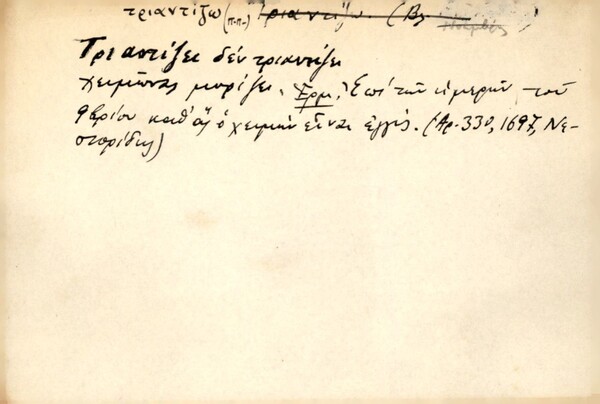 τριαντίζω (π.π.) τριαντίζω (Βλ
Τριαντίζει δέν τριαντίζει
χειμῶνας μυρίζει, Ἑρμ. Ἐπί τῶν ἡμερῶν τοῦ
9βρίου καθ' ἅς ὁ χειμών εἶναι ἐγγύς. (Αρ. 330, 1697, Νε-
στορίδης)